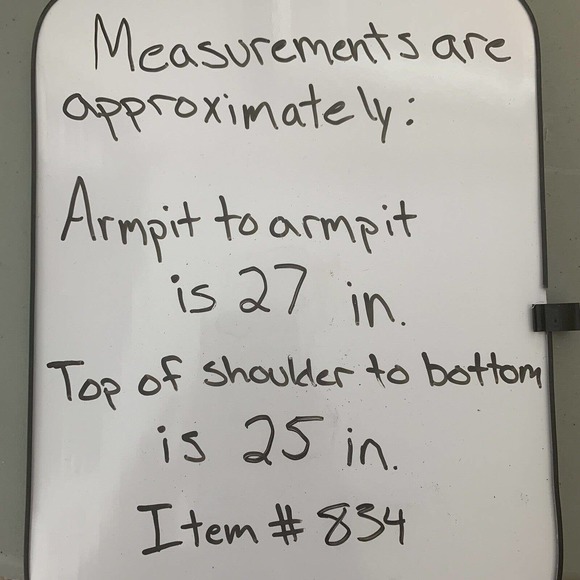 Measurements are
approximately:
Armpit to armpit
is 27 in.
Top of shoulder to bottom
is 25 in.
Item # 834